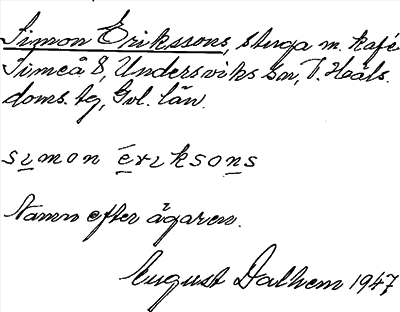 Simon Erikssons, stuga m. kafé
Simeå 8, Undersviks sn, V. Häls.
doms. tg, Gvl. län.
sımon érıksons
Namn efter ägaren.
August Dalhem 1947